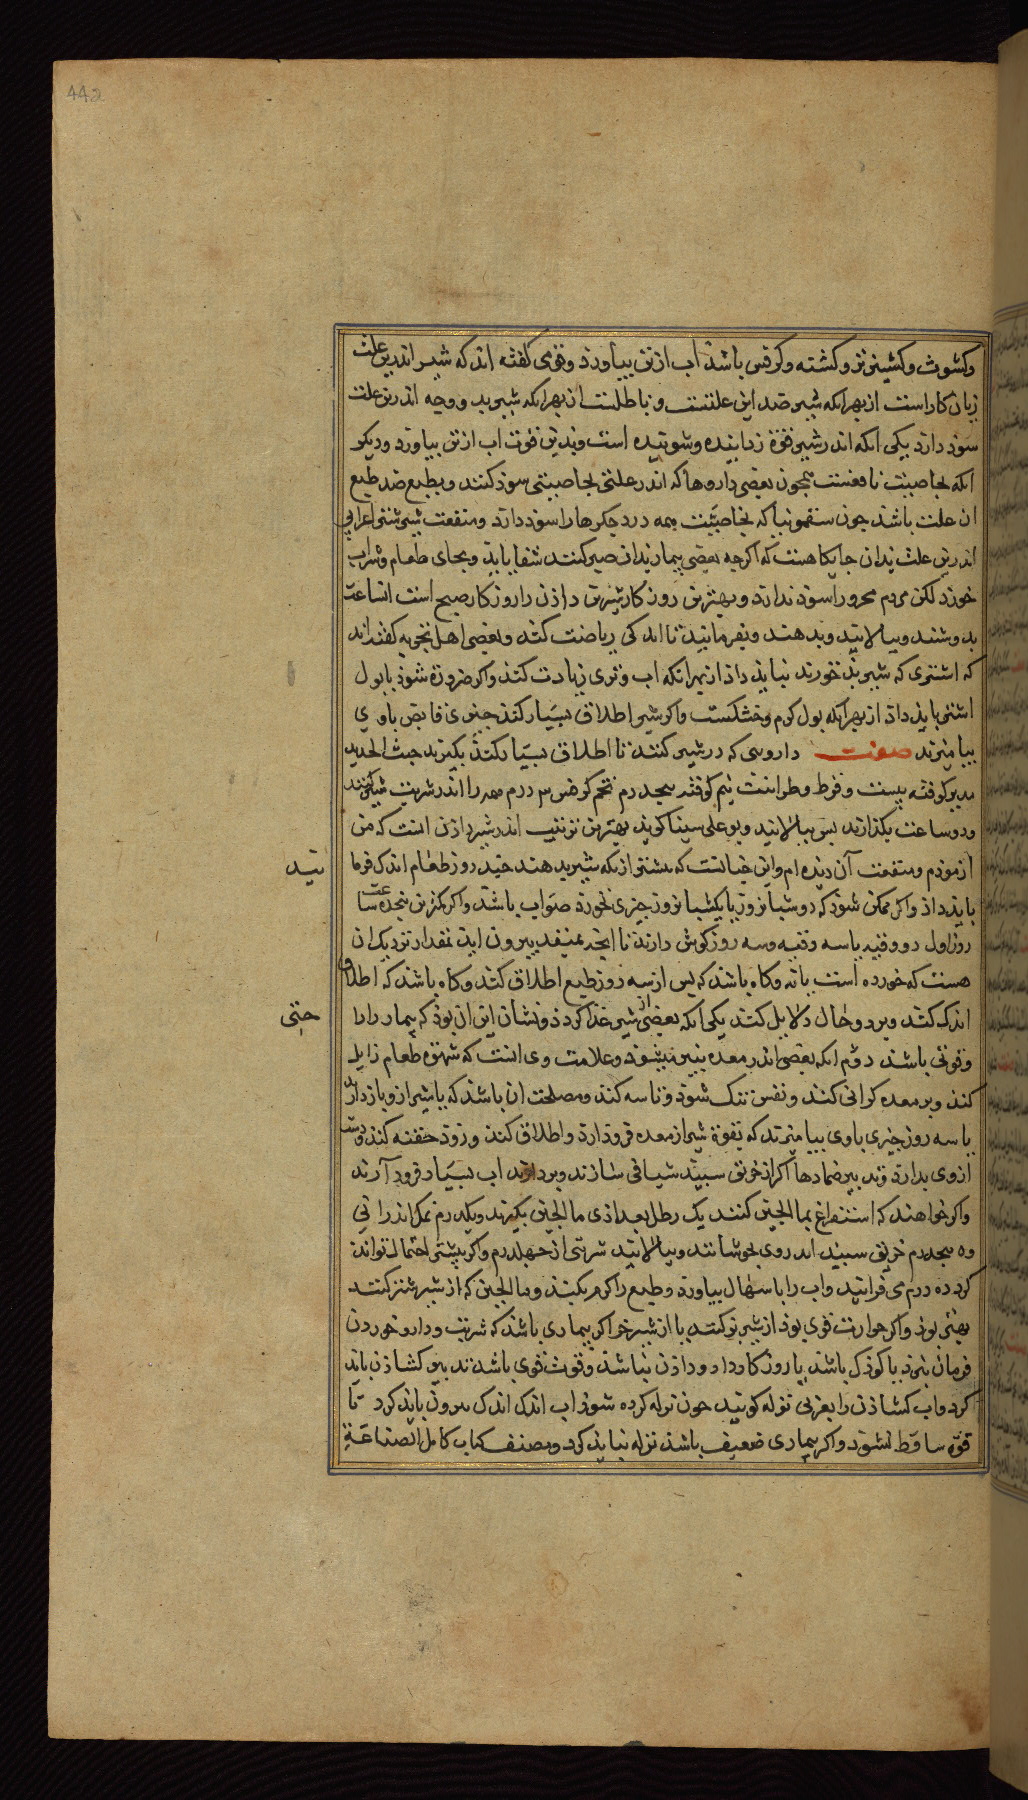 442
وکشوث وکشنیز تر وکشته وکرفس باشد اب از تن بیاورد وقومی گفته اند که شیر اندرین علت
زیان کار است از بهر انکه شیر ضد این علتست و باطلست از بهر انکه شیر بدو وجه اندرین علت
سود دارد یکی انکه اندر شیر قوة زداینده وشوینده است وبدین قوت اب از تن بیاورد ودیکر
انکه بخاصیت نافعست همچون بعضی داروها که اندر علتی بخاصیتی سود کنند وبطبع ضد طبع
ان علت باشد چون سقمونیا که بخاصیت همه درد جکرها را سود دارد ومنفعت شیر شتر اعرابی
اندرین علت بدان جایکاهست که اکرچه بعضی بیماران بدان صبر کنند شفا یابد وبجای طعام وشراب
خورد لکن مردم محرور را سود ندارد وبهترین روزکار شیر دادن را روزکار صبح است انساعت
بدوشند وبپالایند وبدهند وبفرمایند تا اندکی ریاضت کند وبعضی اهل تجربه گفته اند
که اشتری که شیر بد خورند نباید داد از بهر انکه اب وتری زیادت کند واکر ضرورة شود با بول
اشتر باید داد از بهر انکه بول کرم وخشکست واکر شیر اطلاق بسیار کند چیزی قابض باوی
بیامیزند صفت داروی که در شیر کنند تا اطلاق بسیار نکند بکیرند خبث الحدید
مدبر کوفته بیست وقرط وطراثیث نیم کوفته پنجدرم تخم کرفس سه درم همه را اندر شربت شیر کنند
ودو ساعت بکذارند پس بپالایند وبوعلی سینا کوید بهترین ترتیب اندر شیر دادن انست که من
ازمودم ومنفعت آن دیده ام واین چنانست که بیشتر از انکه شیر بدهند چند روز طعام اندک فرما
یند
باید داد واکر ممکن شود که دو شبانروز یا یکشبانروز چیزی نخورد صواب باشد واکر کمترین پنجده ساعت
روز اول دو وقیه یا سه وقیه وسه روز کوش دارند تا انچه بمنفذ بیرون اید بمقدار نزدیک ان
هست که خورده است یا نه وکاه باشد که پس از سه روز طبع اطلاق کند وکاه باشد که اطلاق
اندک کند وبر دو حال دلایل کند یکی انکه بعضی از شیر غذا کردد ونشان این ان بود که بیمار را
حتی
وقوتی باشد دوم انکه بعضی اندر معده پنیر میشود وعلامت وی انست که شهوة طعام زایل
کند وبر معده کرانی کند ونفس تنک شود وتاسه کند ومصلحت ان باشد که یا شیر از و باز دارند
یا سه روز چیزی باوی بیامیزند که بقوة شیر از معده فرود ارد واطلاق کند وزود حقنه کند ودست
ازوی بدارد وتدبیر ضمادها اکر از خربق سپید شیافی سازند وبردارند اب بسیار فرود آرند
واکر خواهند که استفراغ بما الجبن کنند یک رطل بغدادی ما الجبن بکیرند ویکدرم نمک اندرانی
وه پنجدرم خربق سپید اندر وی بجوشانند وبپالایند شربتی از چهلدرم واکر بیشتر احتمال تواند
کرد ده درم می فزایند واب را باسهال بیاورد وطبع را کرم نکند وما الجبن که از شیر شتر کنند
بهتر بود واکر حرارت قوی بود از شیر بز کنند یا از شیر خر اکر بیماری باشد که شربت ودارو خوردن
فرمان نبرد یا کودک باشد یا روزکار دارو دادن نباشد وقوت قوی باشد تدبیر کشادن باید
کرد واب کشادن را بعربی نزله کویند چون نزله کرده شود اب اندک اندک بیرون باید کرد تا
قوة ساقط نشود واکر بیماری ضعیف باشد نزله نباید کرد ومصنف کتاب کامل الصناعة